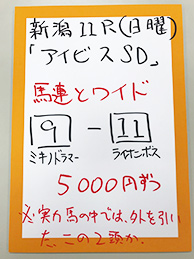 新潟11R(日曜)
「アイビスSD」
馬連とワイド
9 - 11
ミキノドラマー ライオンボス
5000円ずつ
※実力馬の中では、外を引い
た、この2頭か。